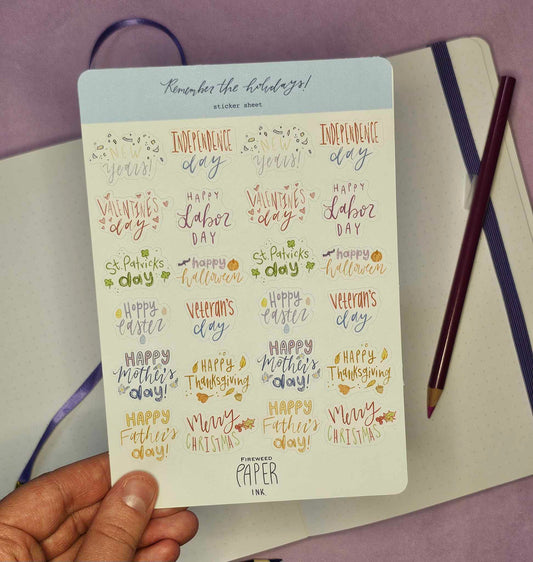 Remember the holidays!
sticker sheet
NEW INDEPENDENCE NEW INDEPENDENCE
Years! day Years! day
VALENTINES HAPPY VALENTINES HAPPY
day Labor day Labor
DAY DAY
St. Patricks happy St. Patricks happy
day halloween day halloween
Hoppy veteran's Hoppy veteran's
easter day easter day
HAPPY HAPPY HAPPY HAPPY
Mother's Thanksgiving Mother's Thanksgiving
day! day!
HAPPY Merry HAPPY Merry
Father's CHRISTMAS Father's CHRISTMAS
day! day!
FIREWEED
PAPER
INK